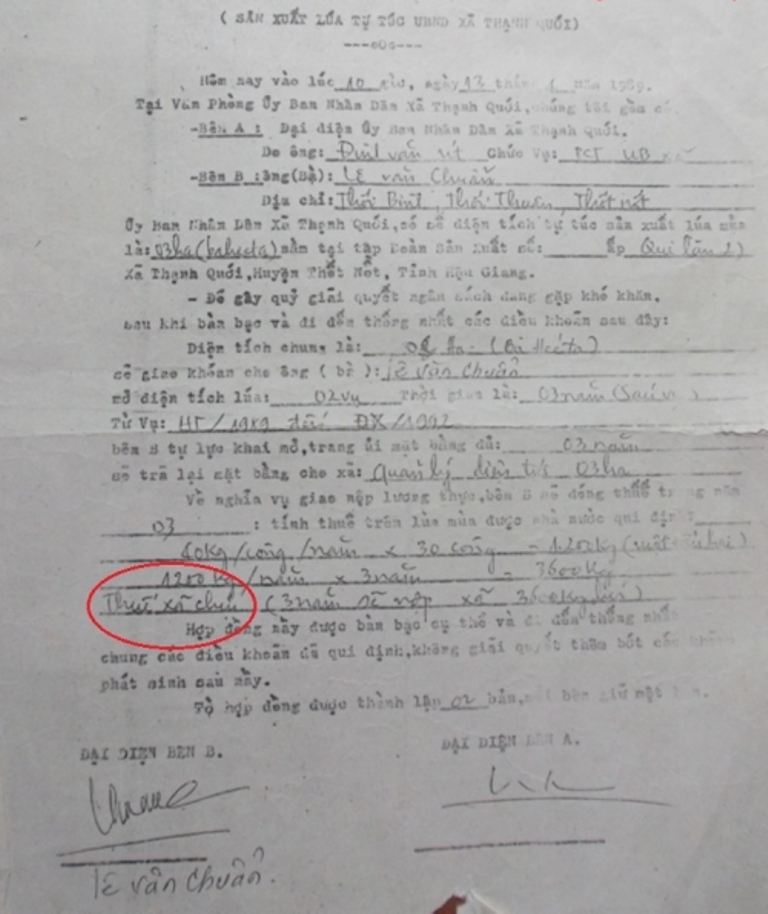 ( SẢN XUẤT LÚA TỰ TÚC UBND XÃ THẠNH QUỚI)
---oOo---
Hôm nay vào lúc 10 giờ, ngày 13 tháng năm 1989.
Tại Văn Phòng Ủy Ban Nhân Dân Xã Thạnh Quới, chúng tôi gồm có
-Bên A : Đại diện Ủy Ban Nhân Dân Xã Thạnh Quới.
Do ông: Đinh văn út Chức Vụ: PCT UB xã
-Bên B :ông(Bà): Lê văn Chuẩn
Địa chỉ: Thới Bình, Thới Thuận, Thốt nốt
Ủy Ban Nhân Dân Xã Thạnh Quới, có số diện tích tự túc sản xuất lúa mùa
là: 03ha (ba hecta) nằm tại tập Đoàn Sản Xuất số: ấp Qui lân 2)
Xã Thạnh Quới, Huyện Thốt Nốt, Tỉnh Hậu Giang.
- Để gây quỹ giải quyết ngân sách đang gặp khó khăn.
sau khi bàn bạc và đi đến thống nhất các điều khoản sau đây:
Diện tích chung là: ha (Ba Hecta)
sẽ giao khoán cho ông ( bà ): Lê văn Chuẩn
mở diện tích lúa: 02 vụ Thời gian là: 03 năm (Sáu vụ)
Từ Vụ: HT/1989 đến ĐX/1992
bên B tự lực khai mở, trang ủi mặt bằng đủ: 03 năm
sẽ trả lại mặt bằng cho xã: Quản lý diện tích 03ha
Về nghĩa vụ giao nộp lương thực, bên B sẽ đóng thuế trong năm
03 : tính thuế trên lúa mùa được nhà nước qui định:
40kg/công/năm x 30 công = 1.200kg (một hai)
1200kg/năm x 3 năm = 3600kg
Thuế xã chịu (3 năm sẽ nộp xã 3600kg lúa)
Hợp đồng nầy được bàn bạc cụ thể và đi đến thống nhất
chung các điều khoản đã qui định, không giải quyết thêm bớt các
phát sinh sau nầy.
Tờ hợp đồng được thành lập 02 bản, mỗi bên giữ một bản.
ĐẠI DIỆN BÊN B. ĐẠI DIỆN BÊN A.
lê văn Chuẩn.